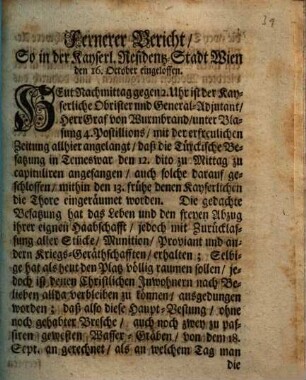 Fernerer Bericht/
So in der Kayserl. Residentz-Stadt Wien
den 16. October eingeloffen.
HEut Nachmittag gegen 2. Uhr ist der Kay-
serliche Obrister und General-Adjutant/
Herr Graf von Wurmbrand/ unter Bla-
sung 4. Postillions/ mit der erfreulichen
Zeitung allhier angelangt/ daß die Türckische Be-
satzung in Temeswar den 12. dito zu Mittag zu
capituliren angefangen/ auch solche darauf ge-
schlossen/ mithin den 13. frühe denen Kayserlichen
die Thore eingeräumet worden. Die gedachte
Besatzung hat das Leben und den freyen Abzug
ihrer eignen Haabschafft/ jedoch mit Zurücklas-
sung aller Stücke/ Munition/ Proviant und an-
dern Kriegs-Geräthschafften/ erhalten; Selbi-
ge hat als heut den Platz völlig raumen sollen/ je-
doch ist denen Christlichen Inwohnern nach Be-
lieben allda verbleiben zu können/ ausgedungen
worden; daß also diese Haupt-Vestung/ ohne
noch gehabter Bresche/ auch noch zwey zu pas-
siren gewesten Wasser-Gräben/ von dem 18.
Sept. an gerechnet/ als an welchem Tag man
die